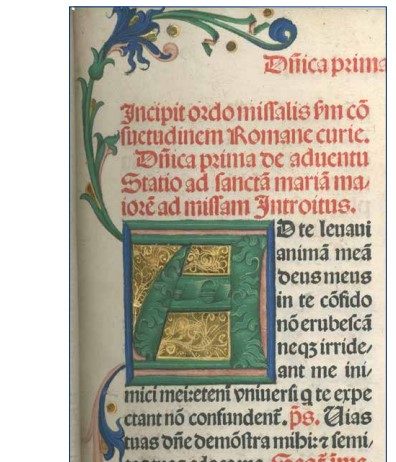 Dñica prima
Incipit ordo missalis ẜm cō
suetudinem Romane curie.
Dñica prima de aduentu
Statio ad sanctā mariā ma/
iorē ad missam Introitus.
AD te leuaui
animā meā
deus meus
in te cōfido
nō erubescā
neqꝫ irride/
ant me ini/
mici mei: etenī vniuersi q te expe
ctant nō confundent̄. p̄s. Uias
tuas dñe demōstra mihi: ⁊ semi/